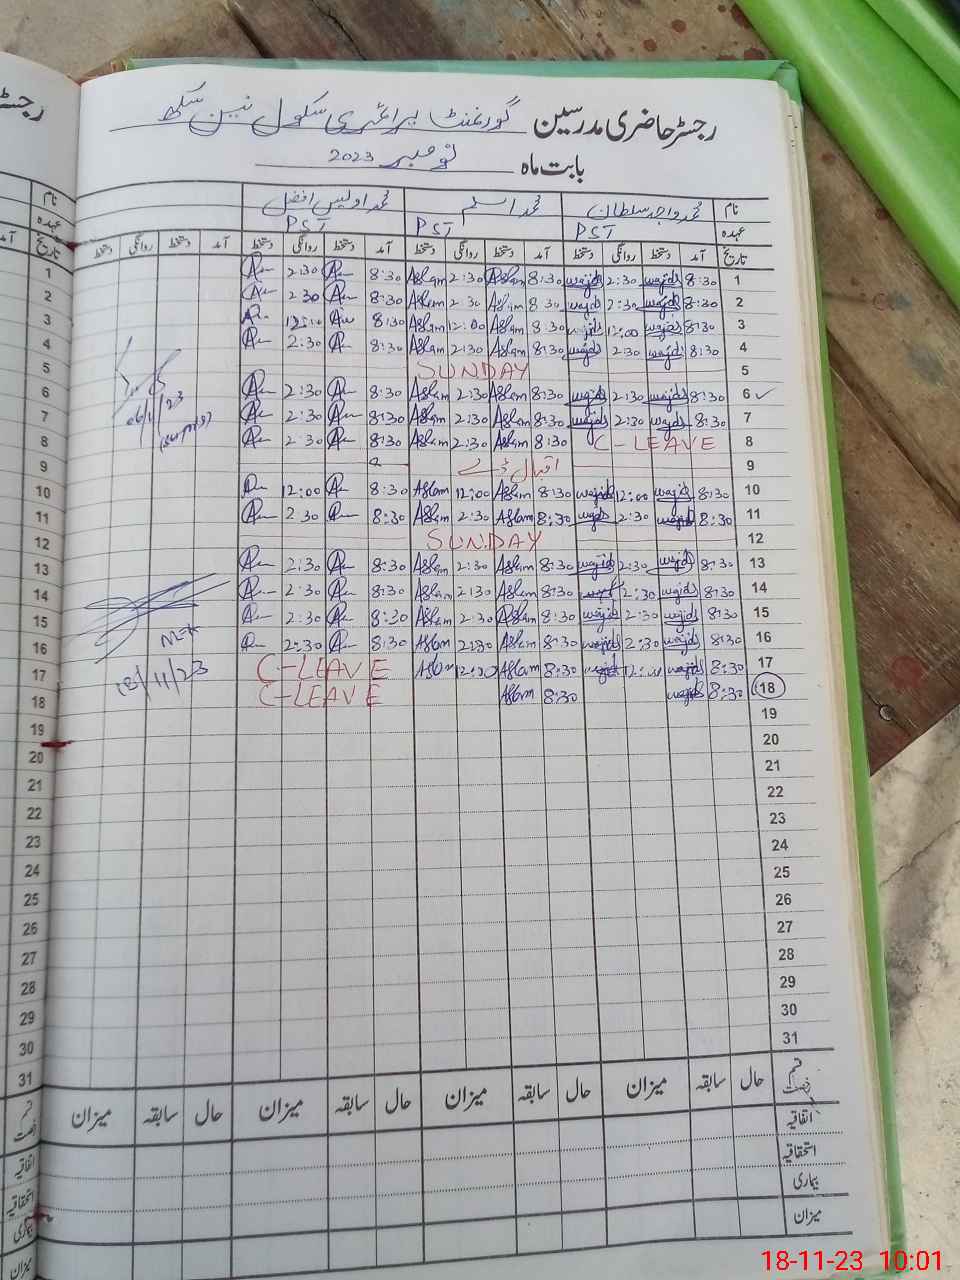 رجسٹر حاضری مدرسین گورنمنٹ پرائمری سکول نین سکھ
بابت ماہ نومبر 2023
نام محمد واجد سلطان محمد اسلم محمد اویس افضل
عہدہ PST PST PST
تاریخ آمد دستخط روانگی دستخط آمد دستخط روانگی دستخط آمد دستخط روانگی دستخط آمد دستخط روانگی دستخط
1 8:30 wajid 2:30 wajid 8:30 Aslam 2:30 Aslam 8:30 2:30
2 8:30 wajid 2:30 wajid 8:30 Aslam 2:30 Aslam 8:30 2:30
3 8:30 wajid 12:00 wajid 8:30 Aslam 12:00 Aslam 8:30 12:00
4 8:30 wajid 2:30 wajid 8:30 Aslam 2:30 Aslam 8:30 2:30
5 SUNDAY
6 8:30 wajid 2:30 wajid 8:30 Aslam 2:30 Aslam 8:30 2:30
7 8:30 wajid 2:30 wajid 8:30 Aslam 2:30 Aslam 8:30 2:30
8 C-LEAVE 8:30 Aslam 2:30 Aslam 8:30 2:30
9 اقبال ڈے
10 8:30 wajid 12:00 wajid 8:30 Aslam 12:00 Aslam 8:30 12:00
11 8:30 wajid 2:30 wajid 8:30 Aslam 2:30 Aslam 8:30 2:30
12 SUNDAY
13 8:30 wajid 2:30 wajid 8:30 Aslam 2:30 Aslam 8:30 2:30
14 8:30 wajid 2:30 wajid 8:30 Aslam 2:30 Aslam 8:30 2:30
15 8:30 wajid 2:30 wajid 8:30 Aslam 2:30 Aslam 8:30 2:30
16 8:30 wajid 2:30 wajid 8:30 Aslam 2:30 Aslam 8:30 2:30
17 8:30 wajid 12:00 wajid 8:30 Aslam 12:00 Aslam C-LEAVE
18 8:30 wajid 8:30 Aslam C-LEAVE
19
20
21
22
23
24
25
26
27
28
29
30
31
قسم رخصت حال سابقہ میزان حال سابقہ میزان حال سابقہ میزان حال سابقہ میزان
اتفاقیہ
استحقاقیہ
بیماری
میزان
18/11/23
نام
عہدہ
تاریخ آمد
1
2
3
4
5
6
7
8
9
10
11
12
13
14
15
16
17
18
19
20
21
22
23
24
25
26
27
28
29
30
31
قسم رخصت
اتفاقیہ
استحقاقیہ
بیماری
میزان
18-11-23 10:01